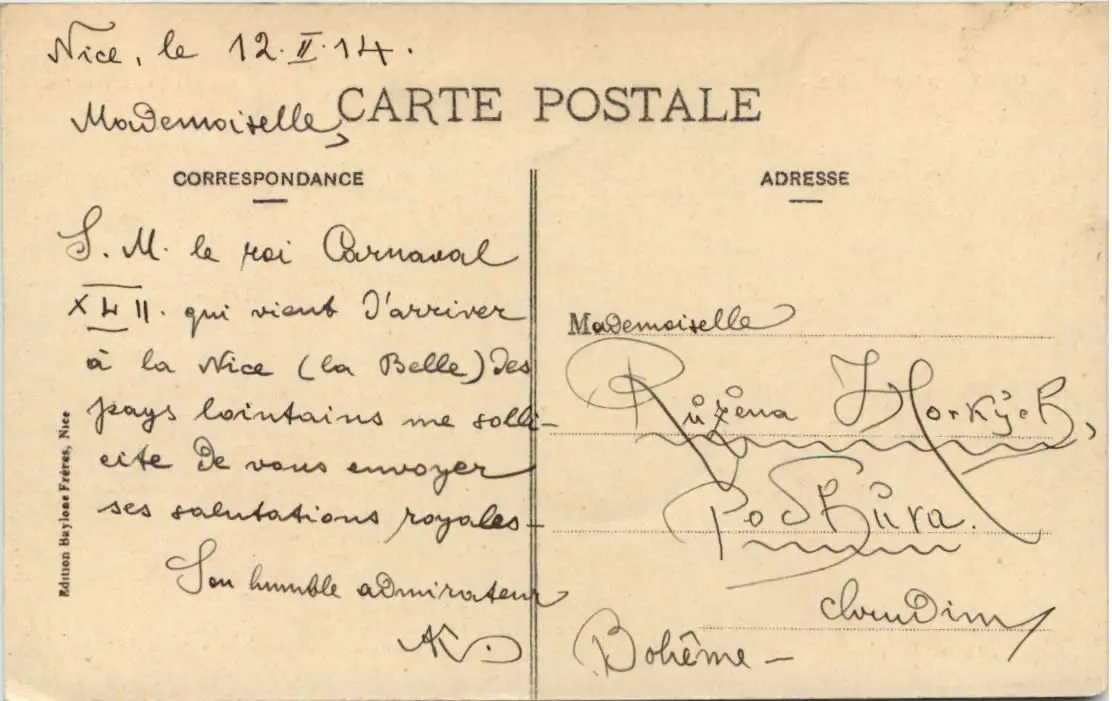 Nice, le 12.II.14.
Mademoiselle,
CARTE POSTALE
CORRESPONDANCE
S. M. le roi Carnaval
XLII. qui vient d'arriver
à la Nice (la Belle) des
pays lointains me solli-
cite de vous envoyer
ses salutations royales-
Son humble admirateur
Edition Baylone Frères, Nice
ADRESSE
Mademoiselle
Růžena Horkých,
Podhůra.
Chrudim
Bohême -